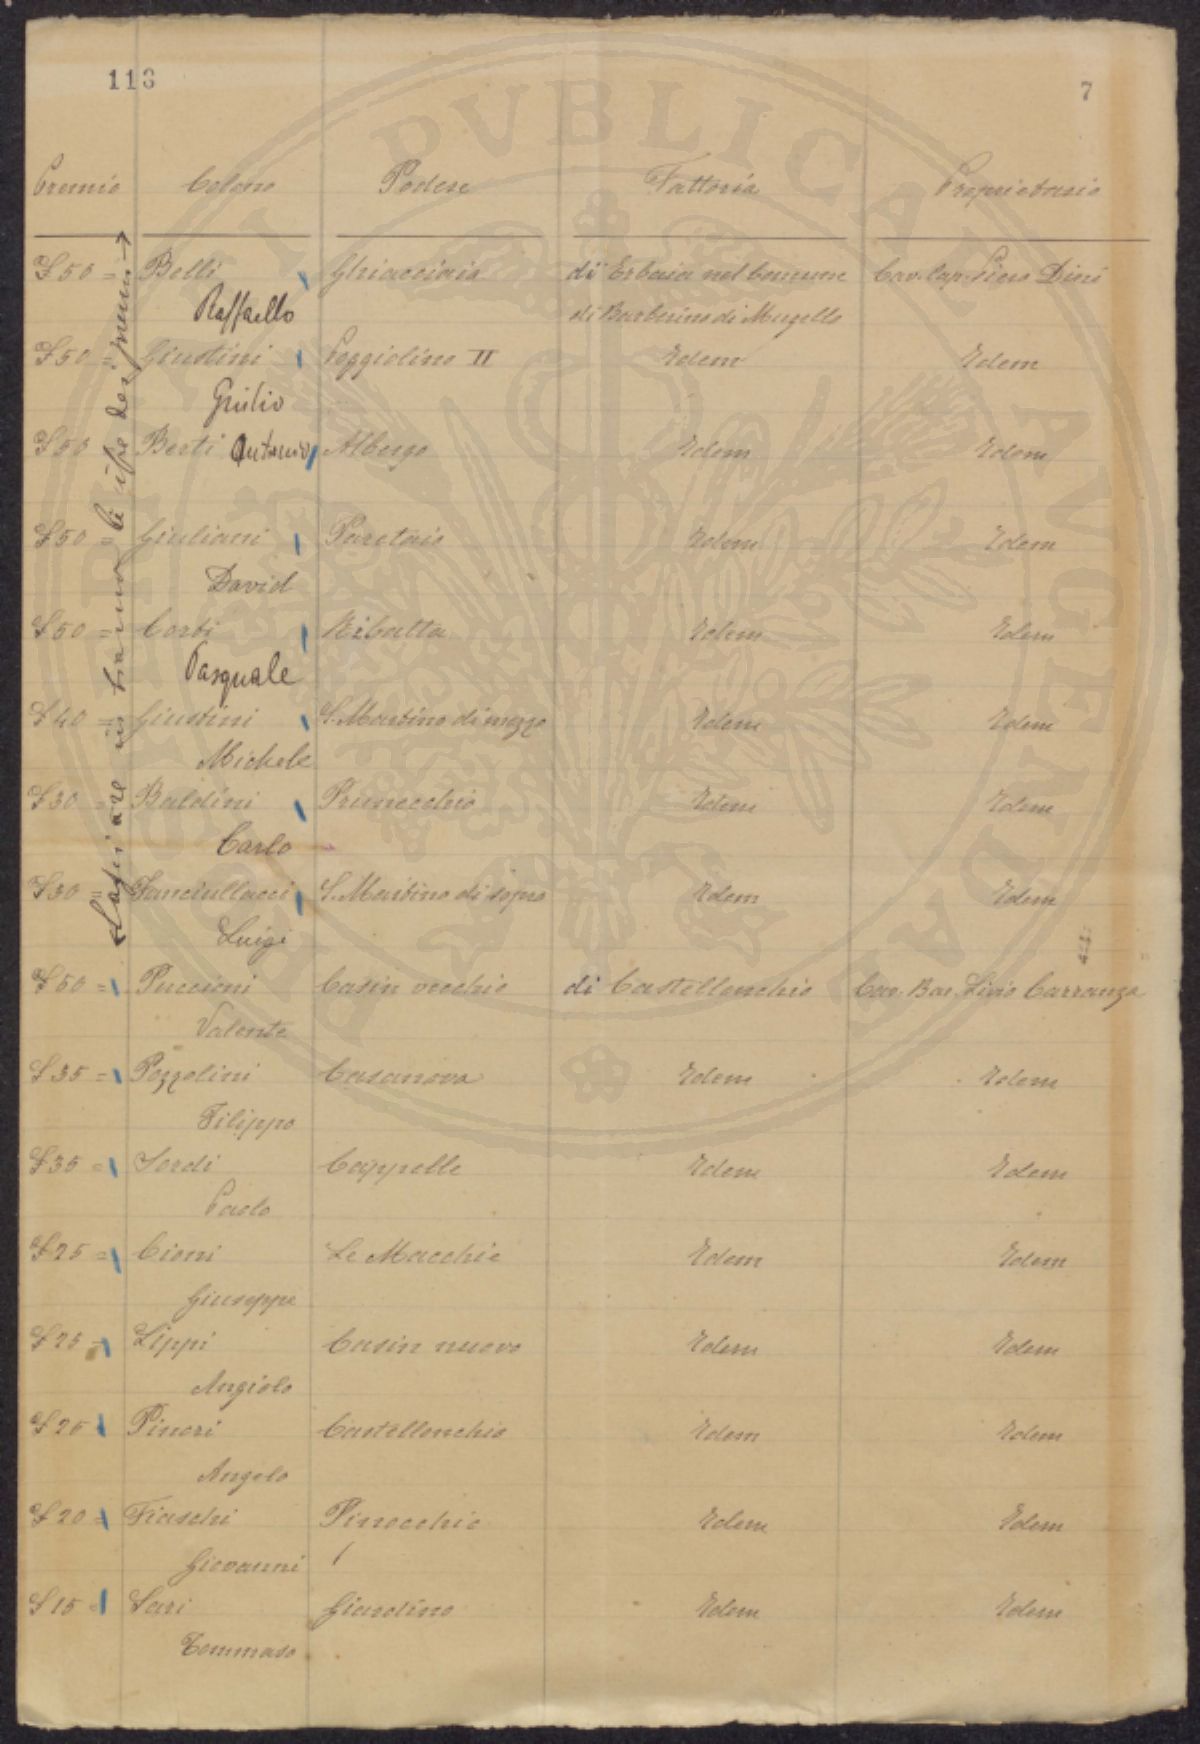 113
7
Premio Colono Podere Fattoria Proprietario
£50 = Belli Ghiacciaia di Erbaia nel Comune Cav. Cap. Piero Dini
Raffaello di Barberino di Mugello
£50 = Giustini Poggiolino II Idem Idem
Giulio
£50 Berti Antonio Albergo Idem Idem
£50 = Giuliani Paretaio Idem Idem
David
£50 = Corti Ribatta Idem Idem
Pasquale
£40 = Giustini S. Martino di mezzo Idem Idem
Michele
£30 Baldini Prunecchio Idem Idem
Carlo
£30 = Fanciullacci S. Martino di sopra Idem Idem
Luigi
£50 = Puccioni Casin vecchio di Castellonchio Cav. Bar. Livio Carranza
Valente
£35 = Pozzolini Casanova Idem Idem
Filippo
£35 = Sordi Cappelle Idem Idem
Paolo
£25 = Cioni Le Macchie Idem Idem
Giuseppe
£25 = Lippi Casin nuovo Idem Idem
Angiolo
£25 Pinori Castellonchio Idem Idem
Angelo
£20 = Fiaschi Pinocchio Idem Idem
Giovanni
£15 = Sari Giardino Idem Idem
Tommaso
Lasciare in bianco le cifre dei premi
PVBLICAE AVGENDAE